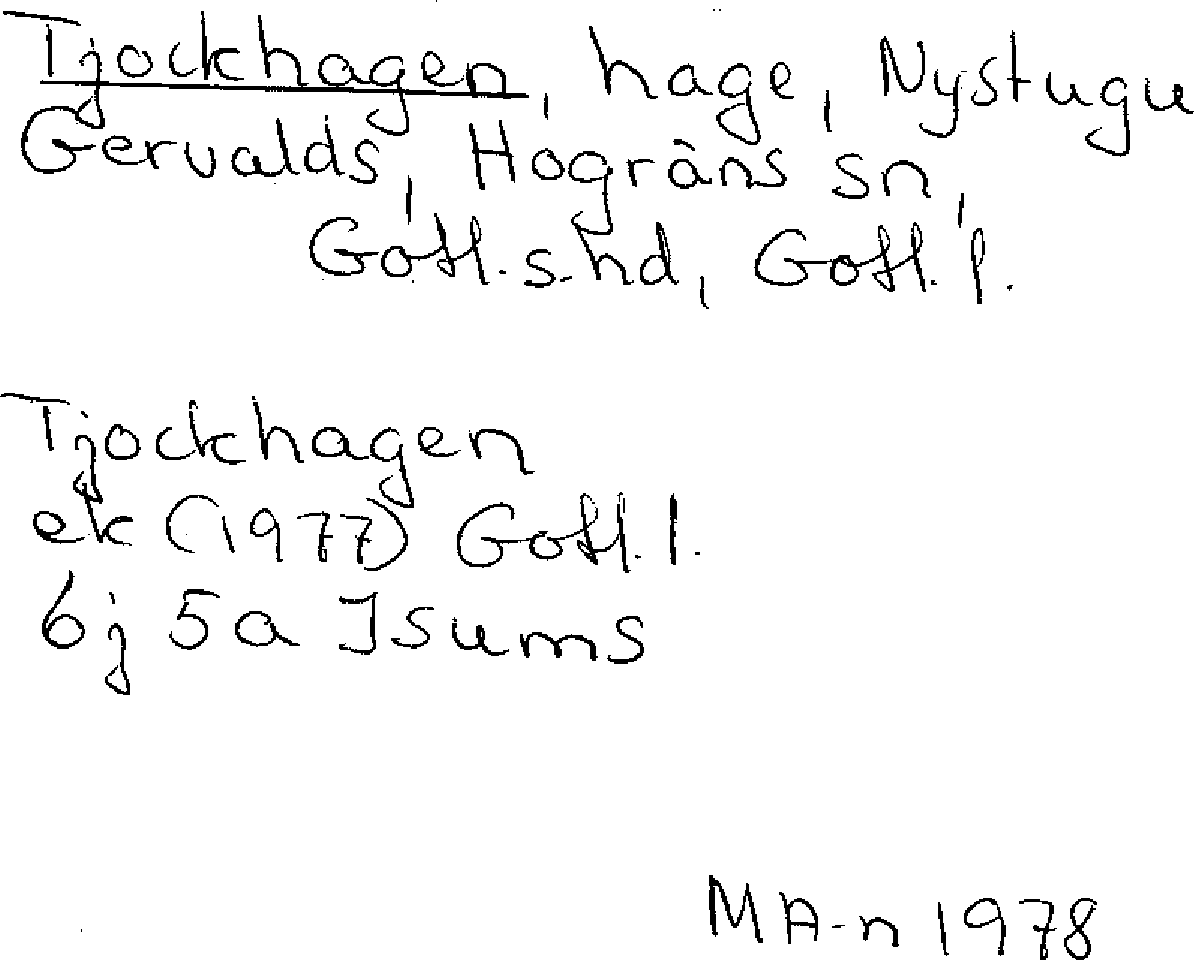 Tjockhagen, hage, Nystugu
Gervalds, Hogräns sn,
Gotl. s. hd, Gotl. l.
Tjockhagen
ek (1977) Gotl. l.
6j 5a Isums
MA-n 1978